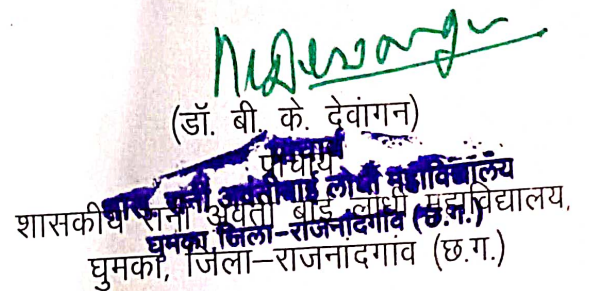 (डॉ. बी. के. देवांगन)
प्राचार्य
शासकीय रानी अवंती बाई लोधी महाविद्यालय,
घुमका, जिला–राजनांदगांव (छ.ग.)
प्राचार्य
शास. रानी अवंतीबाई लोधी महाविद्यालय
घुमका, जिला-राजनांदगांव (छ.ग.)